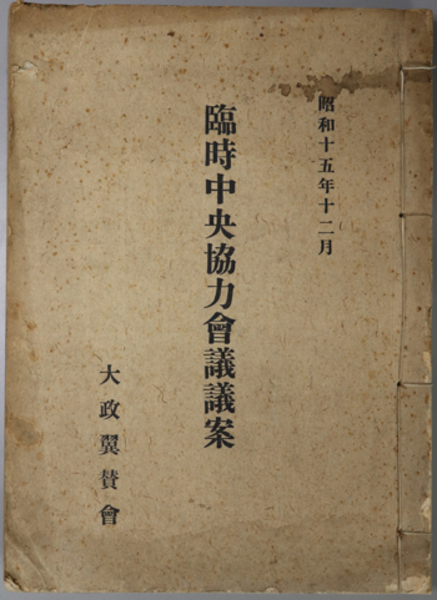 昭和十五年十二月
臨時中央協力會議議案
大政翼賛會